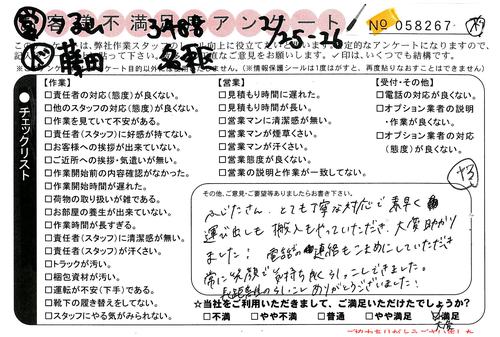 お客様不満足度アンケート
No 058267
このアンケートは、弊社作業スタッフのレベル向上に役立てたいと
定的なアンケートになりますので、
直なご意見をお願いします。✓印は、いくつでも結構です。
アンケート目的以外に
(※情報保護シールは1度はがすと、再度貼りなおすことはできません)
3488
2/25-26
藤田
チェックリスト
【作業】
□責任者の対応(態度)が良くない。
□他のスタッフの対応(態度)が良くない。
□作業を見ていて不安がある。
□責任者(スタッフ)に好感が持てない。
□お客様への挨拶が出来ていない。
□ご近所への挨拶・気遣いが無い。
□作業開始前の内容確認がなかった。
□作業開始時間が遅れた。
□荷物の取り扱いが雑である。
□お部屋の養生が出来ていない。
□作業時間が長すぎる。
□責任者(スタッフ)に清潔感が無い。
□責任者(スタッフ)が汗くさい。
□トラックが汚い。
□梱包資材が汚い。
□運転が不安(下手)である。
□靴下の履き替えをしてない。
□スタッフにやる気がみられない。
【営業】
□見積もり時間に遅れた。
□見積もり時間が長い。
□営業マンに清潔感が無い。
□営業マンが煙草くさい。
□営業マンが汗くさい。
□営業態度が良くない。
□営業の説明と作業が一致してない。
【受付・その他】
□電話の対応が良くない。
□オプション業者の説明
・作業が良くない。
□オプション業者の対応
(態度)が良くない。
その他、ご意見・ご要望等ありましたらお書き下さい。
ふじたさん、とても丁寧な対応で素早く
運び出しも搬入もやっていただき、大変助かり
ました！電話の連絡もこまめにしていただき
常に笑顔で気持ち良く引っこしできました。
長距離の引っこしありがとうございました！
☆当社をご利用いただきまして、ご満足いただけたでしょうか？
□不満 □やや不満 □普通 □やや満足 ☑満足
大変